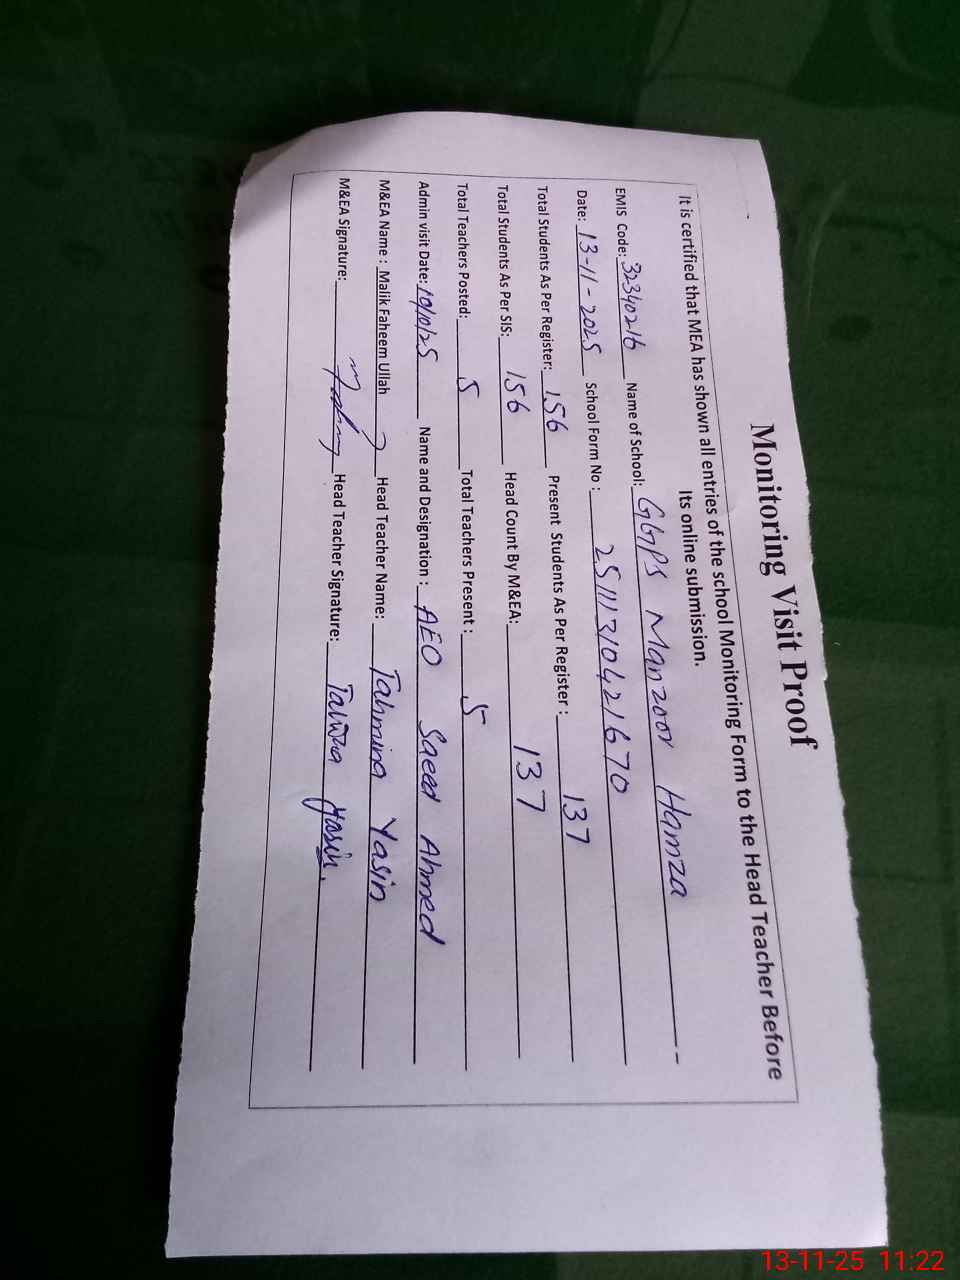 Monitoring Visit Proof
It is certified that MEA has shown all entries of the school Monitoring Form to the Head Teacher Before
Its online submission.
EMIS Code: 32340216 Name of School: GGPS Manzoor Hamza
Date: 13-11-2025 School Form No : 25111310421670
Total Students As Per Register: 156 Present Students As Per Register : 137
Total Students As Per SIS: 156 Head Count By M&EA: 137
Total Teachers Posted: 5 Total Teachers Present : 5
Admin visit Date: 10/10/25 Name and Designation : AEO Saeed Ahmed
M&EA Name : Malik Faheem Ullah Head Teacher Name: Tahmina Yasin
M&EA Signature: Head Teacher Signature: Yasin.
13-11-25 11:22